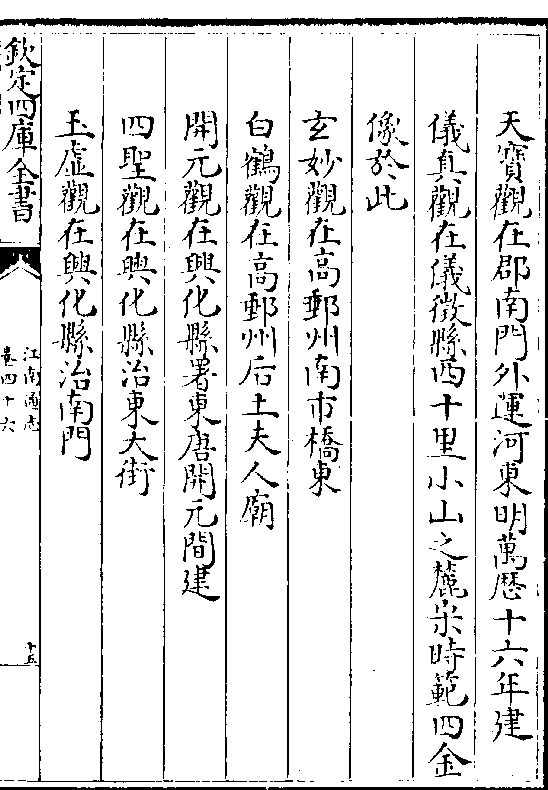 天寳觀在郡南門外運河東明萬歴十六年建
儀真觀在儀徵縣西十里小山之麓宋時範四金
像於此
玄妙觀在高郵州南市橋東
白鶴觀在高郵州后土夫人廟
開元觀在興化縣署東唐開元間建
四聖觀在興化縣治東大街
玉虛觀在興化縣治南門
欽定四庫全書
江南通志
卷四十六
十五